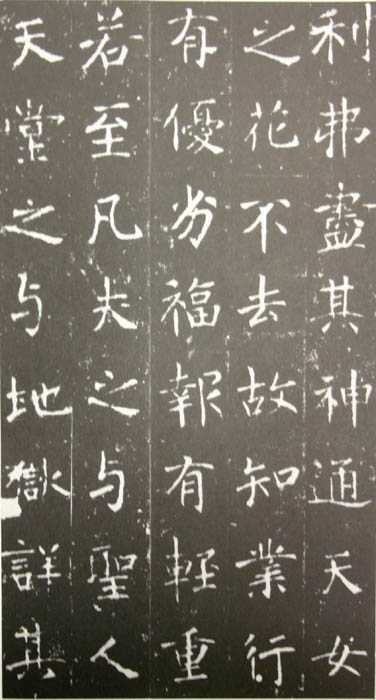 利弗盡其神通天女
之花不去故知業行
有優劣福報有輕重
若至凡夫之与聖人
天堂之与地獄詳其